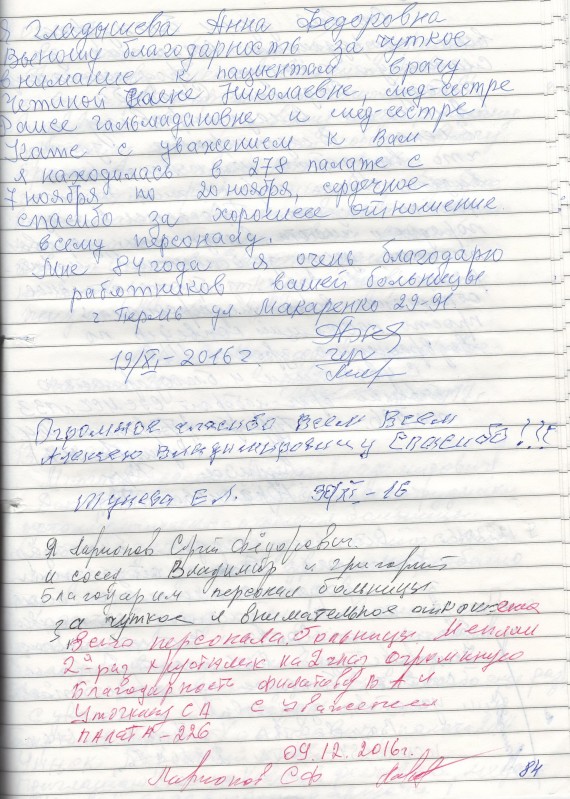 Я Гладышева Анна Федоровна
Выношу благодарность за чуткое
внимание к пациентам врачу
Николаевне, мед-сестре
Раисе и мед-сестре
Кате с уважением к Вам
я находилась в 278 палате с
7 ноября по 20 ноября, сердечное
спасибо за хорошее отношение
всему персоналу.
Мне 84 года я очень благодарю
работников вашей больницы
г Пермь ул Макаренко 29-91
19/XI-2016 г
Огромное спасибо Всем Всем
Алексею Владимировичу Спасибо!!!
Е. Л. /XI-16
Я Ларионов Сергей Фёдорович.
и сосед Владимир и Григорий
Благодарим персонал больницы
за чуткое и внимательное отношение
Всего персонала больницы Меняли
2й раз хрусталик на 2 глаз огромную
Благодарность Филатову В А и
СА с Уважением
ПАЛАТА-226
09.12.2016г.
Ларионов СФ
84